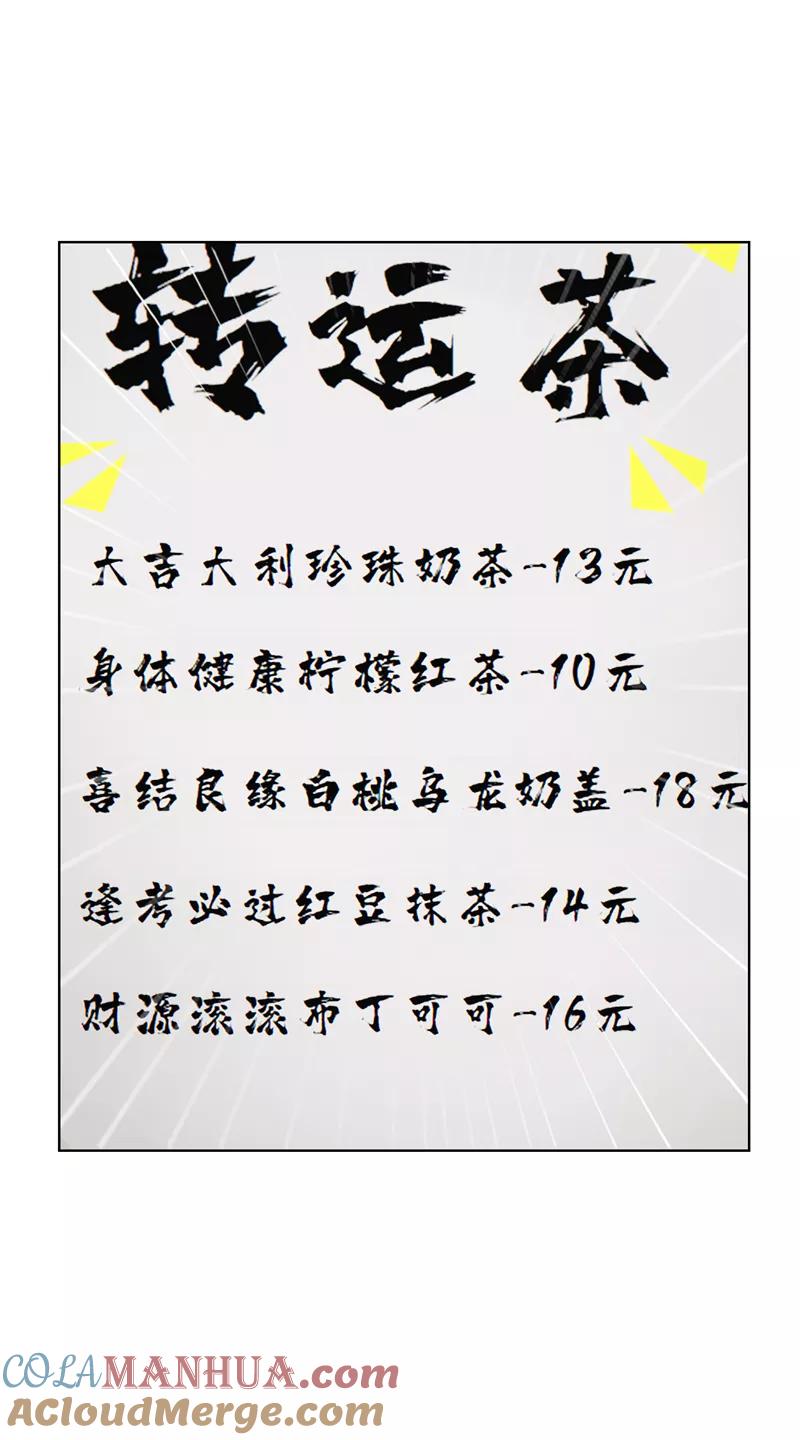 转运茶
大吉大利珍珠奶茶-13元
身体健康柠檬红茶-10元
喜结良缘白桃乌龙奶盖-18元
逢考必过红豆抹茶-14元
财源滚滚布丁可可-16元
COLAMANHUA.com
ACloudMerge.com